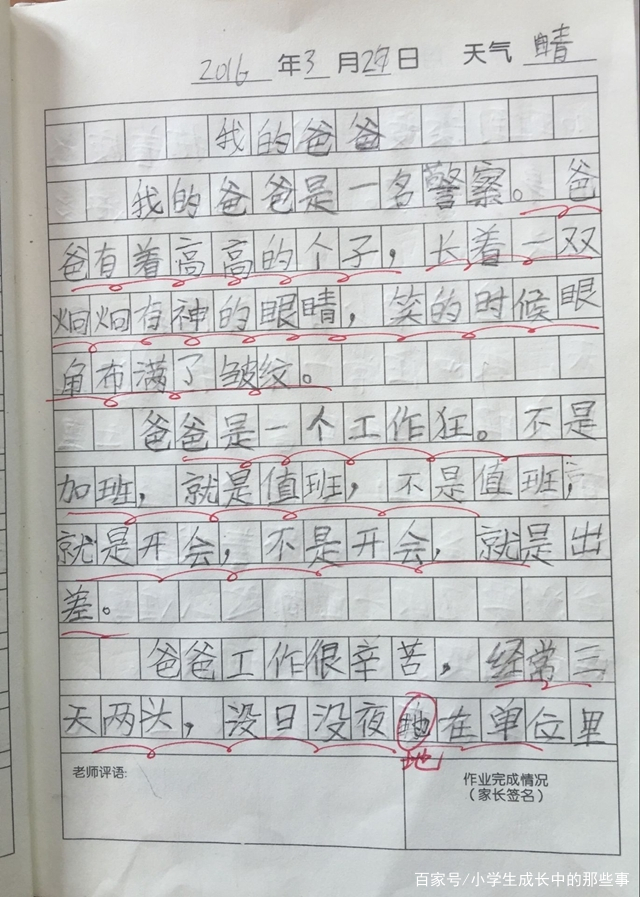 2016 年 3 月 27 日 天气 晴
我的爸爸
我的爸爸是一名警察。爸
爸有着高高的个子，长着一双
炯炯有神的眼睛，笑的时候眼
角布满了皱纹。
爸爸是一个工作狂。不是
加班，就是值班，不是值班，
就是开会，不是开会，就是出
差。
爸爸工作很辛苦，经常三
天两头，没日没夜地在单位里
地
老师评语:
作业完成情况
（家长签名）
百家号/小学生成长中的那些事